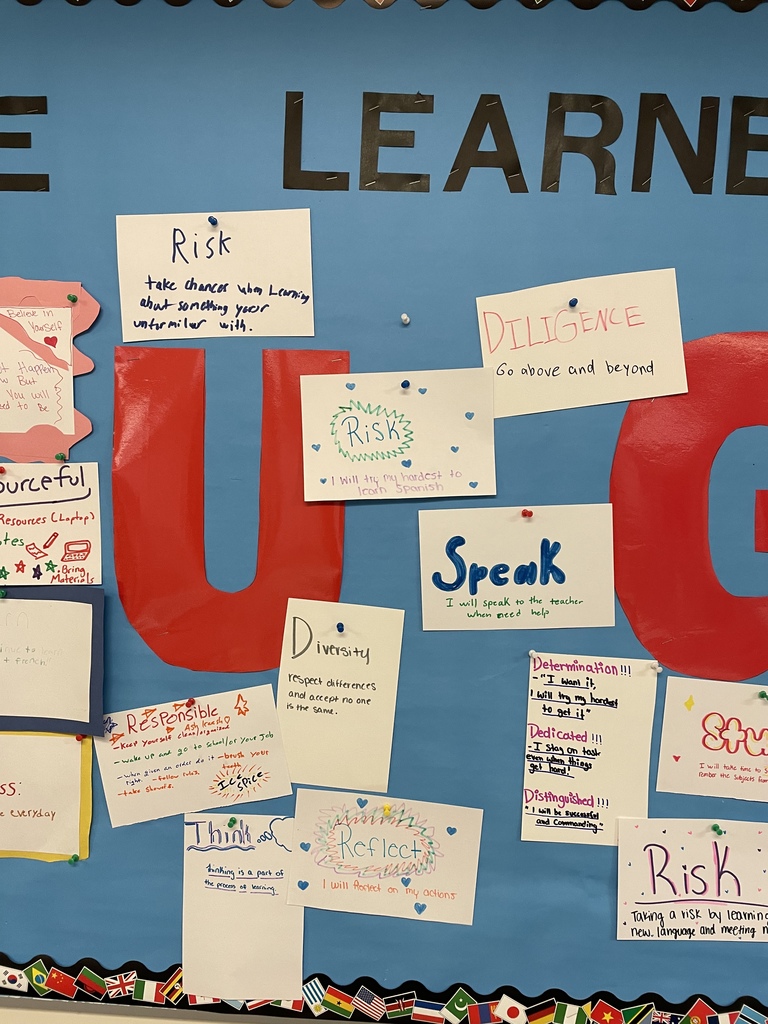 E LEARNE
U G
Risk
take chances when Learning
about something your
unfirmiler with.
DILIGENCE
Go above and beyond
Believe in
Yourself
Happen
w But
You will
ed to Be
Risk
I will try my hardest to
learn Spanish
ourceful
Resources (Laptop)
tes
Bring
Materials
Speak
I will speak to the teacher
when need help
Diversity
respect differences
and accept no one
is the same.
+ french
Determination!!!
- "I want it,
I will try my hardest
to get it"
Dedicated!!!
- I stay on task
even when things
get hard!
Distinguished!!!
- I will be successful
and Commanding"
Responsible
- Keep yourself clean/organized
- wake up and go to school/or your Job
- when given an order do it
- brush your
teeth
right.
- follow rules
- take showers.
Ice Spice
Stu
I will take time to S
rember the subjects from
ss:
e everyday
Think
Thinking is a part of
the process of learning.
Reflect
I will Reflect on my actions
Risk
Taking a risk by learning
new. language and meeting n